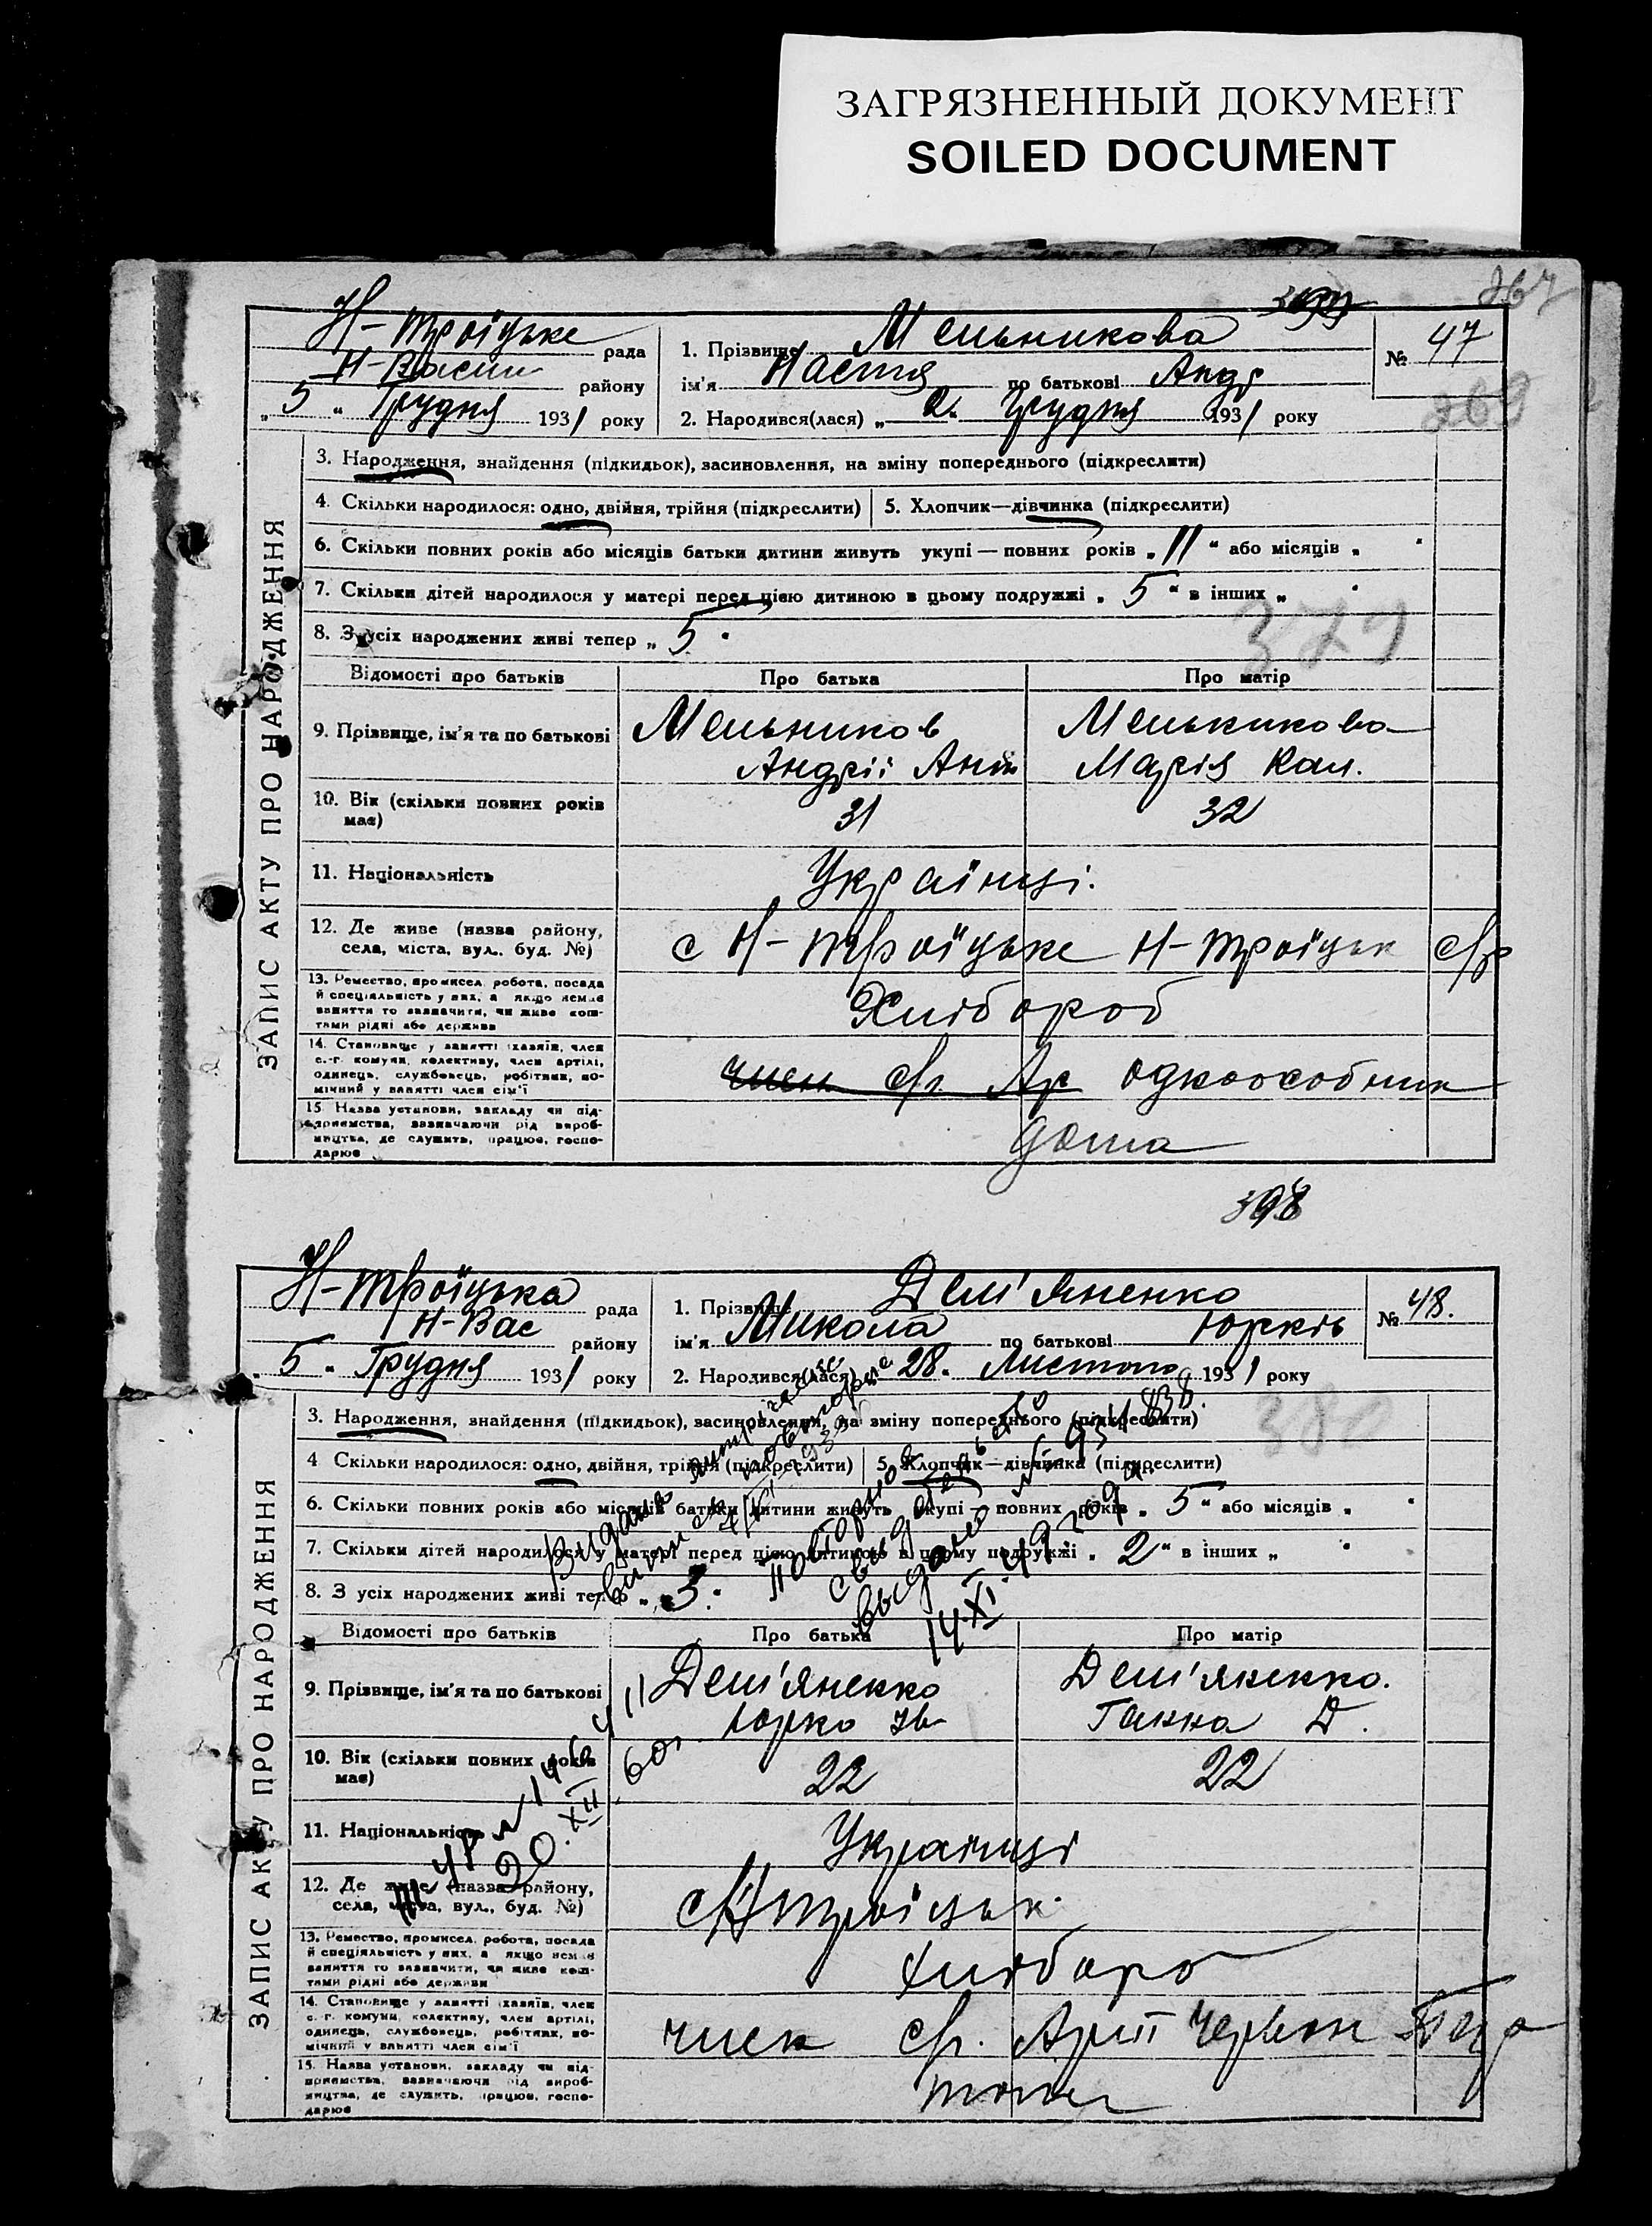 ЗАГРЯЗНЕННЫЙ ДОКУМЕНТ
SOILED DOCUMENT
267
269
ЗАПИС АКТУ ПРО НАРОДЖЕННЯ
Н-Троїцьке рада
Н-Васил району
„5“ Грудня 1931 року
№ 47
1. Прізвище Мельникова
ім'я Настя по батькові Андр
2. Народився(лася) „2. Грудня 1931 року
3. Народження, знайдення (підкидьок), засиновлення, на зміну попереднього (підкреслити)
4. Скільки народилося: одно, двійня, трійня (підкреслити) 5. Хлопчик—дівчинка (підкреслити)
6. Скільки повних років або місяців батьки дитини живуть укупі — повних років „11“ або місяців „
7. Скільки дітей народилося у матері перед цією дитиною в цьому подружжі „5“ в інших „
8. З усіх народжених живі тепер „5
379
Відомості про батьків Про батька Про матір
9. Прізвище, ім'я та по батькові Мельников Мельникова
Андрії Ант Марія Кал.
10. Вік (скільки повних років має) 31 32
11. Національність Українці.
12. Де живе (назва району, села, міста, вул., буд. №) с Н-Троїцьке Н-Троїцьк с/р
13. Ремество, промисел, робота, посада
й спеціяльність у них, а якщо немає
заняття то зазначити, чи живе кош-
тами рідні або держави
Хлібороб
14. Становище у занятті: хазяїн, член
с.-г. комуни, колективу, член артілі,
одинець, службовець, робітник, по-
мічний у занятті член сім'ї
член с/г. Ар одноособник
15. Назва установи, закладу чи під-
приємства, зазначаючи рід вироб-
ництва, де служить, працює, госпо-
дарює
дома
398
ЗАПИС АКТУ ПРО НАРОДЖЕННЯ
Н-Троїцька рада
Н-Вас району
„5„ Грудня 1931 року
№ 48.
1. Прізвище Дем'яненко
ім'я Микола по батькові Юрків
2. Народився(лася) 28. Листопа 1931 року
3. Народження, знайдення (підкидьок), засиновлення, на зміну попереднього (підкреслити)
380
4 Скільки народилося: одно, двійня, трійня (підкреслити) 5. Хлопчик—дівчинка (підкреслити)
6. Скільки повних років або місяців батьки дитини живуть укупі — повних років „5“ або місяців „
7. Скільки дітей народилося у матері перед цією дитиною в цьому подружжі „2“ в інших „
8. З усіх народжених живі тепер „3.
повторное
свидетельство
выдано
14.XI.49 года
20.XII.
60г
Відомості про батьків Про батька Про матір
9. Прізвище, ім'я та по батькові Дем'яненко Дем'яненко.
Юрко Ів Ганна Д.
10. Вік (скільки повних років має) 22 22
11. Національність Українці
12. Де живе (назва району, села, міста, вул., буд. №) с Н Троїцьк
13. Ремество, промисел, робота, посада
й спеціяльність у них, а якщо немає
заняття то зазначити, чи живе кош-
тами рідні або держави
хліборо
14. Становище у занятті: хазяїн, член
с.-г. комуни, колективу, член артілі,
одинець, службовець, робітник, по-
мічний у занятті член сім'ї
член с/г. Арті Червон
15. Назва установи, закладу чи під-
приємства, зазначаючи рід вироб-
ництва, де служить, працює, госпо-
дарює